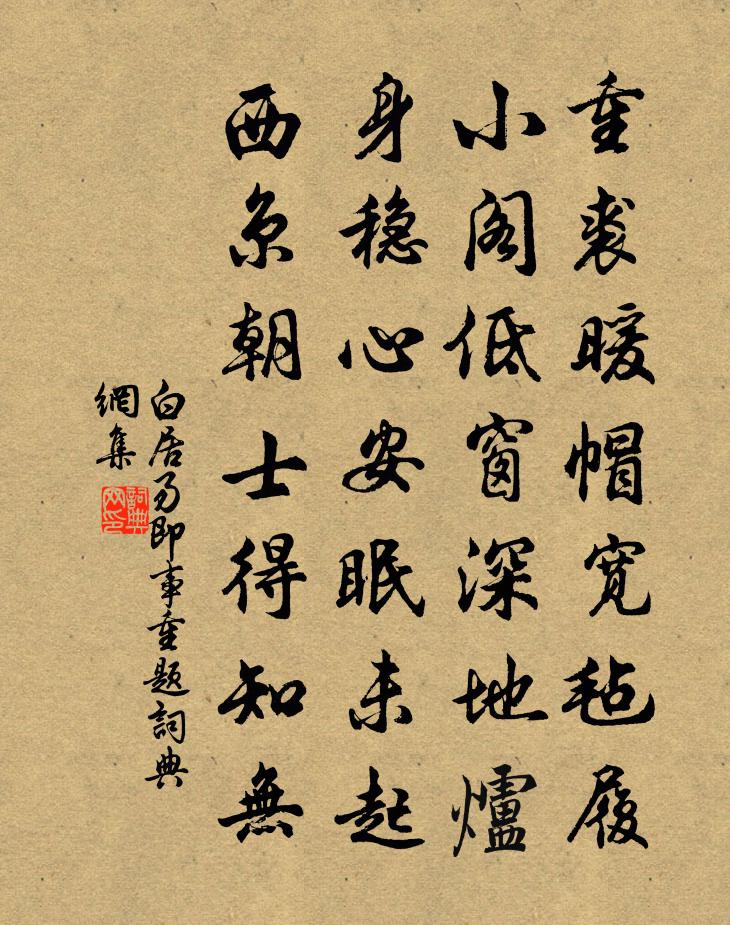 重裘暖帽寬毡履
小阁低窗深地爐
身穩心安眠未起
西京朝士得知無
白居易即事重題詞典
網集
詞典
网印